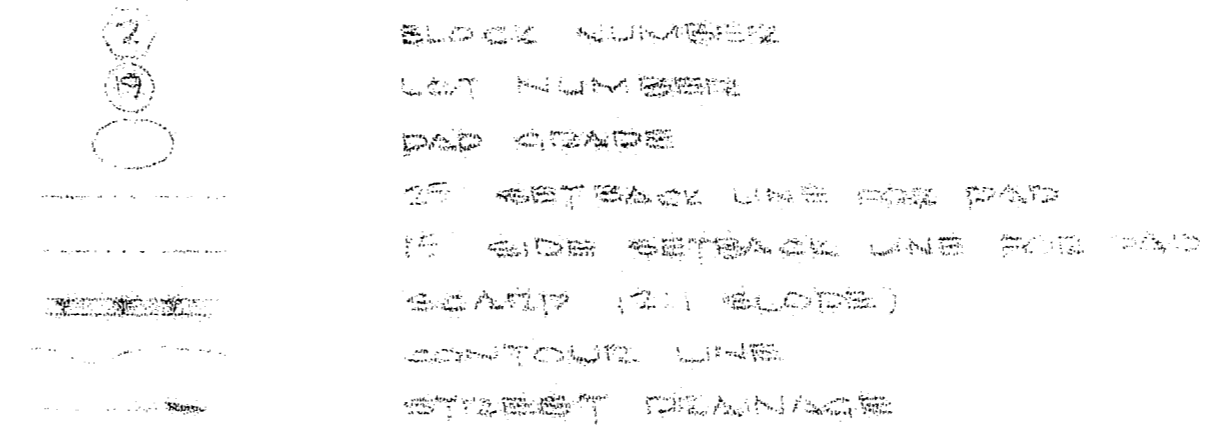 2 BLOCK NUMBER
19 LOT NUMBER
PAD GRADE
25' SETBACK LINE FOR PAD
15' SIDE SETBACK LINE FOR PAD
SCARP (2:1 SLOPE)
CONTOUR LINE
STREET DRAINAGE